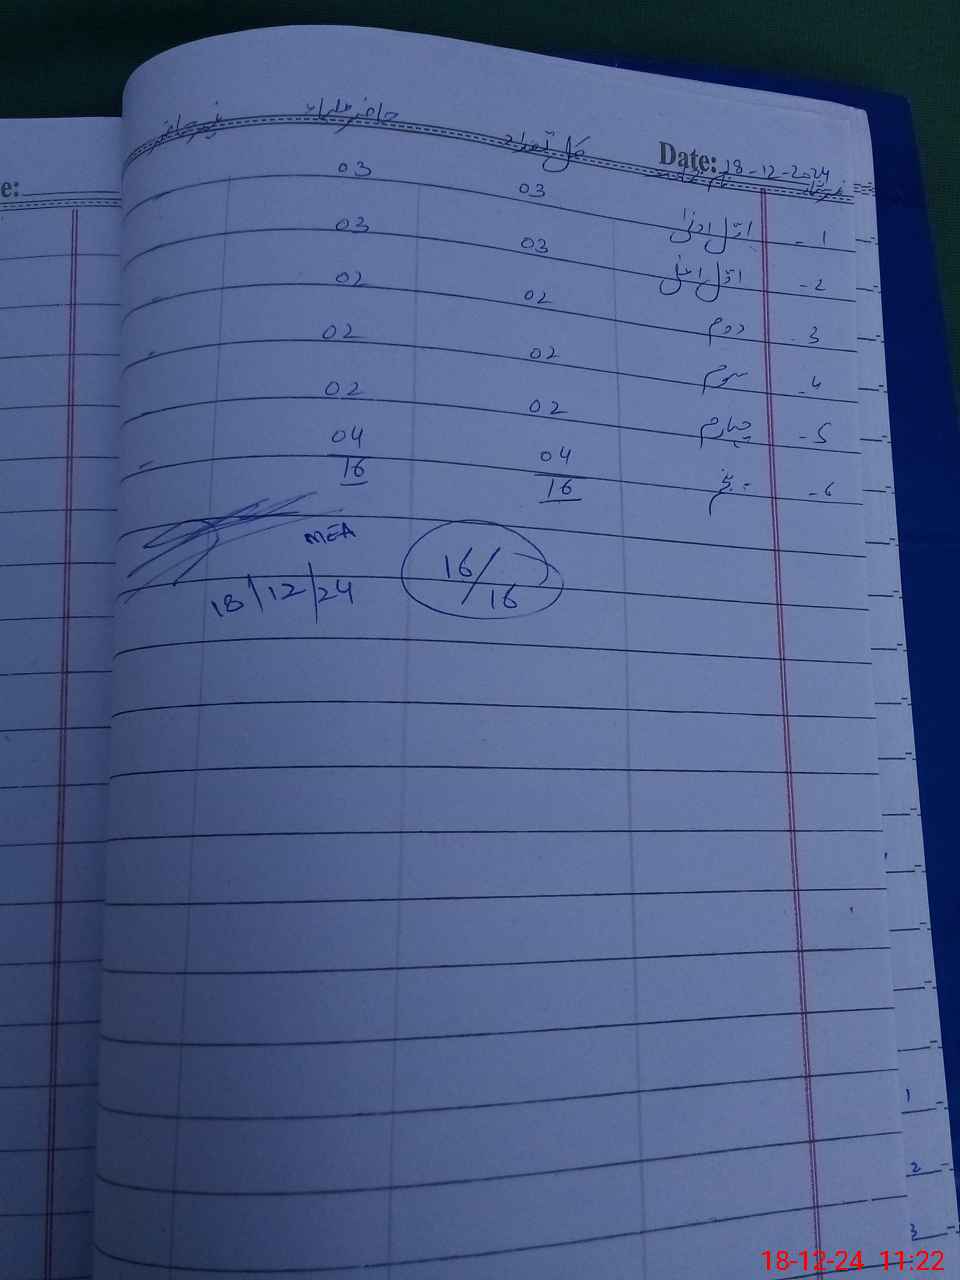 Date: 18-12-2024
نمبر شمار نام جماعت کل تعداد حاضر طلباء غیر حاضر
1- اول ادنیٰ 03 03 -
2- اول اعلیٰ 03 03 -
3- دوم 02 02 -
4- سوم 02 02 -
5- چہارم 02 02 -
6- پنجم 04 04 -
16 16
MEA
16/16
18/12/24
e:
1
2
3
18-12-24 11:22